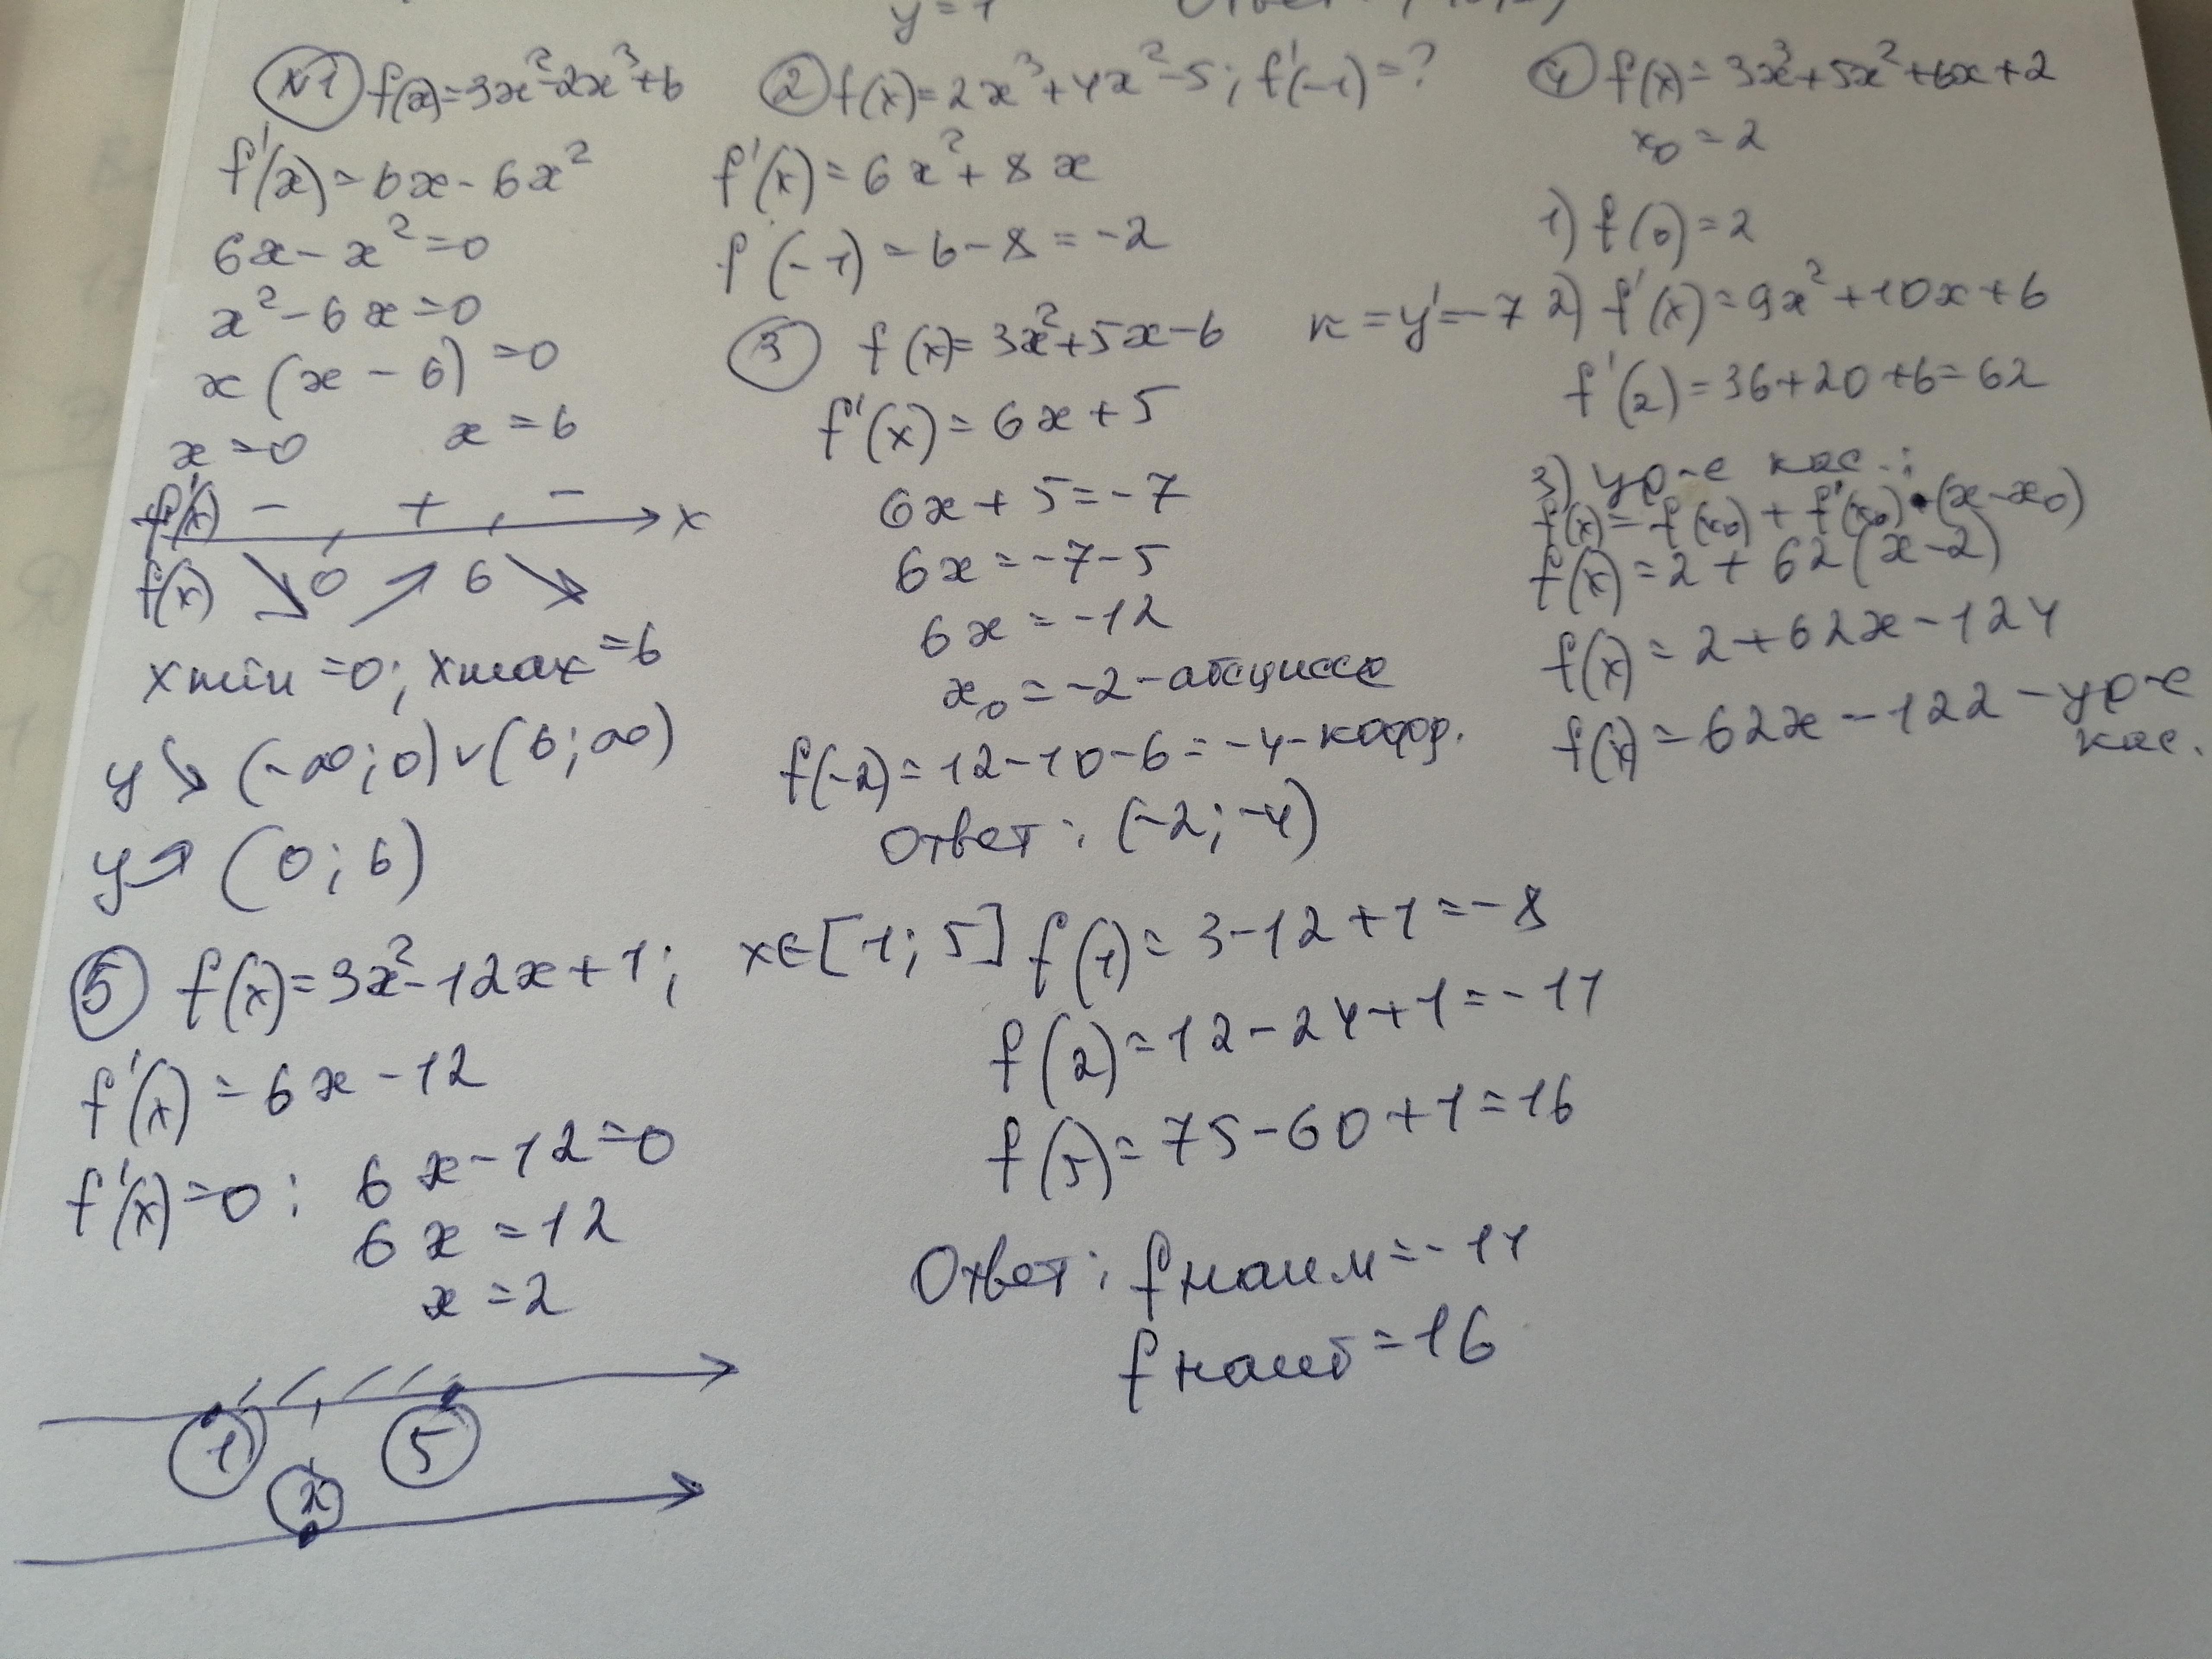 y = 1
№1 f(x)=3x²-2x³+6
f'(x)=6x-6x²
6x-x²=0
x²-6x=0
x(x-6)=0
x=0 x=6
f'(x) - + - x
f(x) ↘ 0 ↗ 6 ↘
xmin=0; xmax=6
y ↘ (-∞;0)∨(6;∞)
y ↗ (0;6)
2 f(x)=2x³+4x²-5; f'(-1)=?
f'(x)=6x²+8x
f'(-1)=6-8=-2
3 f(x)=3x²+5x-6 к=y'=-7
f'(x)=6x+5
6x+5=-7
6x=-7-5
6x=-12
x₀=-2-абсцисса
f(-2)=12-10-6=-4-коэфф.
Ответ: (-2;-4)
4 f(x)=3x³+5x²+6x+2
x₀=2
1) f(0)=2
2) f'(x)=9x²+10x+6
f'(2)=36+20+6=62
3) ур-е кас.:
f(x)=f(x₀)+f'(x₀)·(x-x₀)
f(x)=2+62(x-2)
f(x)=2+62x-124
f(x)=62x-122-ур-е
кас.
5 f(x)=3x²-12x+1; x∈[1;5]
f'(x)=6x-12
f'(x)=0: 6x-12=0
6x=12
x=2
1 5
2
f(1)=3-12+1=-8
f(2)=12-24+1=-11
f(5)=75-60+1=16
Ответ: fнаим=-11
fнаиб=16